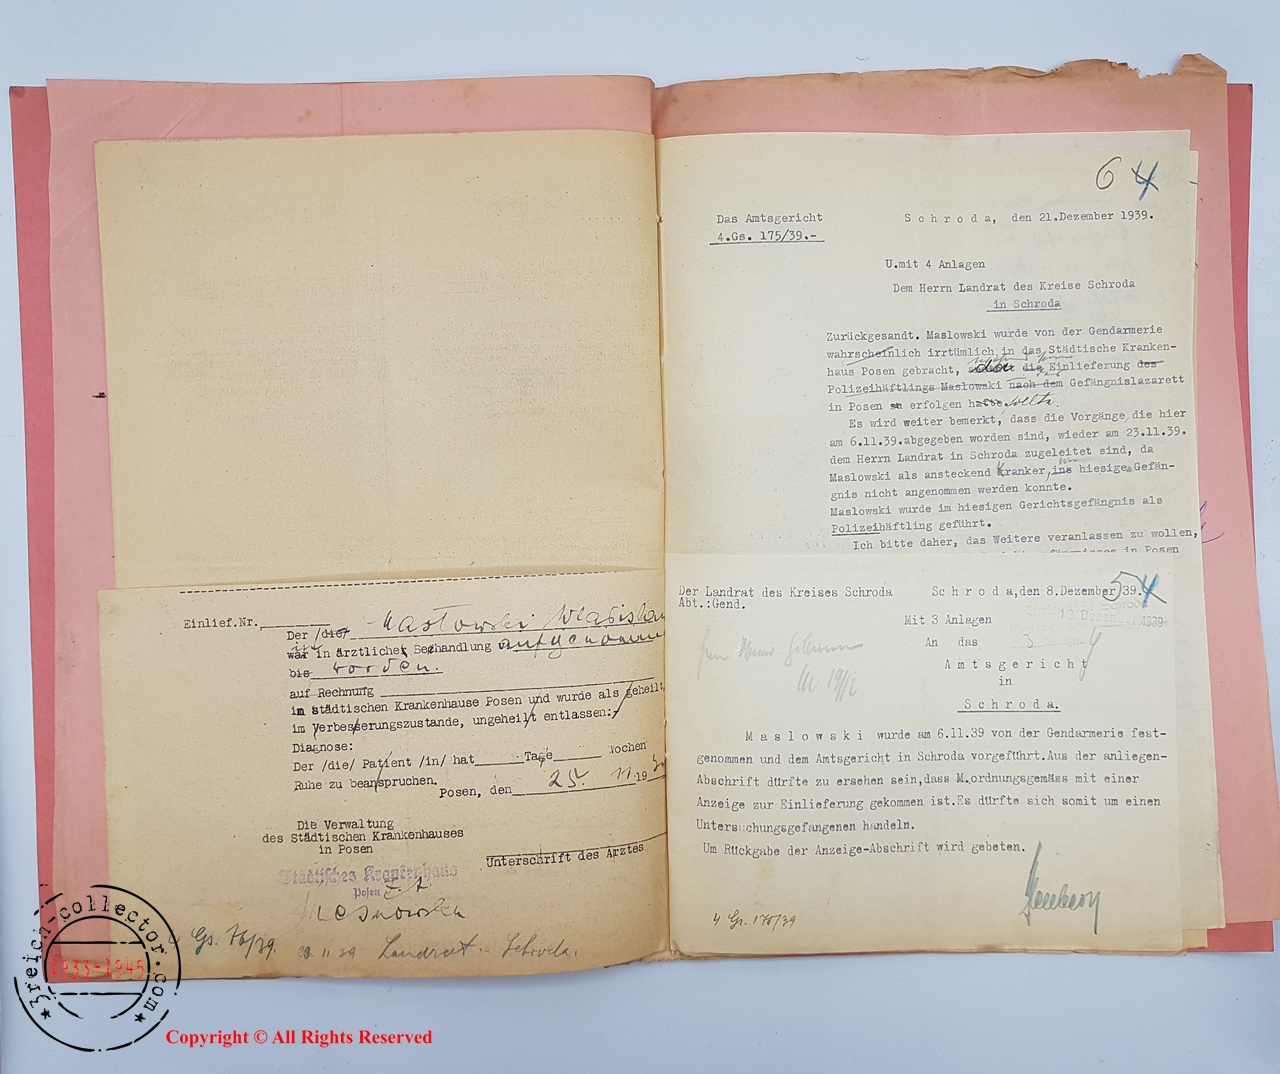 Einlief.Nr.
Der /die/ Maslowski Wladislau
war in ärztlicher Behandlung aufgenommen
bis worden.
auf Rechnung
im städtischen Krankenhause Posen und wurde als geheilt,
im Verbesserungszustande, ungeheilt entlassen:
Diagnose:
Der /die/ Patient /in/ hat Tage Wochen
Ruhe zu beanspruchen.
Posen, den 25. 11. 19
Die Verwaltung
des Städtischen Krankenhauses
in Posen
Unterschrift des Arztes
Städtisches Krankenhaus
Posen
4 Gs. 175/39. 29.11.39 Landrat - Schroda.
6 4
Das Amtsgericht
4.Gs. 175/39.-
Schroda, den 21.Dezember 1939.
U.mit 4 Anlagen
Dem Herrn Landrat des Kreise Schroda
in Schroda
Zurückgesandt. Maslowski wurde von der Gendarmerie
wahrscheinlich irrtümlich in das Städtische Kranken-
haus Posen gebracht, da die Einlieferung des
Polizeihäftlings Maslowski nach dem Gefängnislazarett
in Posen erfolgen hatte sollte.
Es wird weiter bemerkt, dass die Vorgänge, die hier
am 6.11.39.abgegeben worden sind, wieder am 23.11.39.
dem Herrn Landrat in Schroda zugeleitet sind, da
Maslowski als ansteckend Kranker, ins hiesige Gefän-
gnis nicht angenommen werden konnte.
Maslowski wurde im hiesigen Gerichtsgefängnis als
Polizeihäftling geführt.
Ich bitte daher, das Weitere veranlassen zu wollen,
in Posen
Der Landrat des Kreises Schroda
Abt.:Gend.
Schroda,den 8.Dezember 39.
5 4
Mit 3 Anlagen
An das
Amtsgericht
in
Schroda.
Maslowski wurde am 6.11.39 von der Gendarmerie fest-
genommen und dem Amtsgericht in Schroda vorgeführt.Aus der anliegen-
Abschrift dürfte zu ersehen sein,dass M.ordnungsgemäss mit einer
Anzeige zur Einlieferung gekommen ist.Es dürfte sich somit um einen
Untersuchungsgefangenen handeln.
Um Rückgabe der Anzeige-Abschrift wird gebeten.
4 Gs. 175/39
3reich-collector.com
1933-1945
Copyright © All Rights Reserved